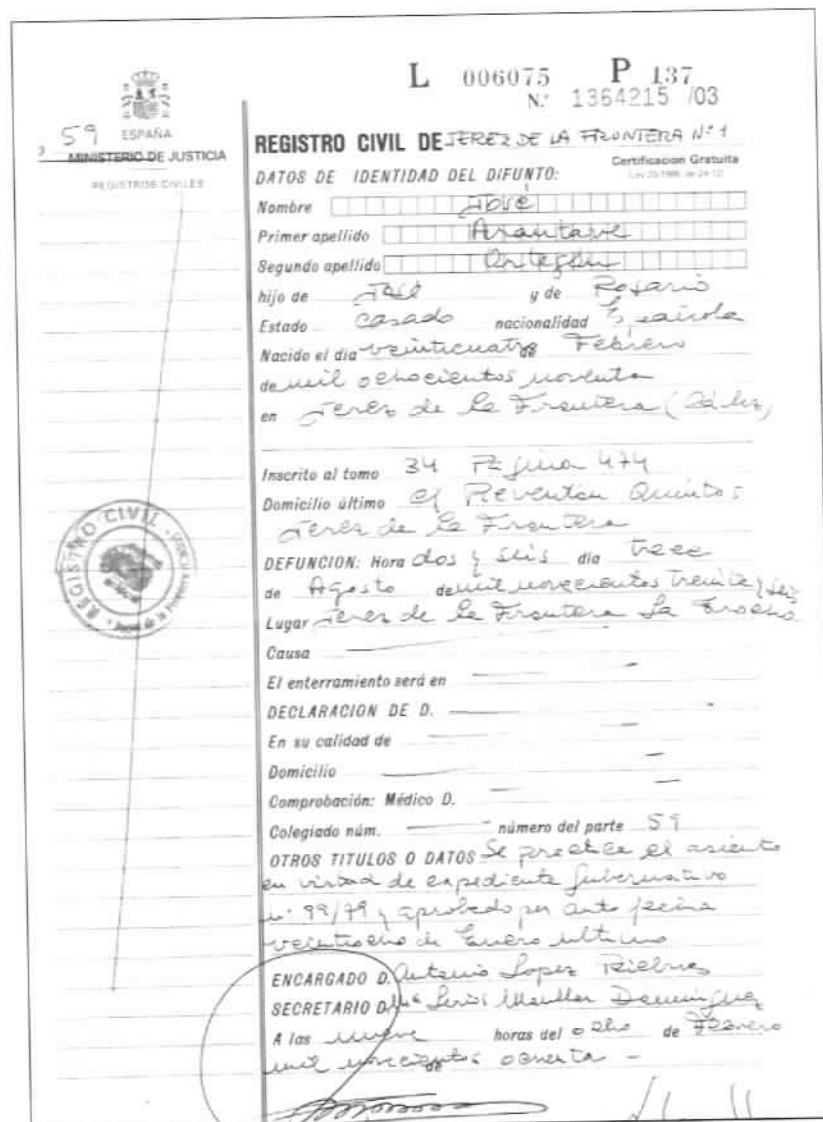 L 006075 P 137
N.º 1364215 /03
59
ESPAÑA
MINISTERIO DE JUSTICIA
REGISTROS CIVILES
REGISTRO CIVIL DE JEREZ DE LA FRONTERA Nº 1
Certificacion Gratuita
DATOS DE IDENTIDAD DEL DIFUNTO:
Nombre José
Primer apellido
Segundo apellido
hijo de José y de Rosario
Estado casado nacionalidad Española
Nacido el día veinticuatro de Febrero
de mil ochocientos noventa
en Jerez de la Frontera (Cádiz)
Inscrito al tomo 34 Página 474
Domicilio último El Reventón Quintos
Jerez de la Frontera
DEFUNCION: Hora dos y seis día trece
de Agosto de mil novecientos treinta y seis
Lugar Jerez de la Frontera La
Causa —
El enterramiento será en —
DECLARACION DE D. —
En su calidad de —
Domicilio —
Comprobación: Médico D. —
Colegiado núm. — número del parte 59
OTROS TITULOS O DATOS Se practica el asiento
en virtud de expediente gubernativo
nº 99/79 y aprobado por auto fecha
veintiocho de Enero ultimo
ENCARGADO D. Antonio Lopez
SECRETARIO D. Mª Dominguez
A las nueve horas del ocho de Febrero
mil novecientos ochenta —
REGISTRO CIVIL